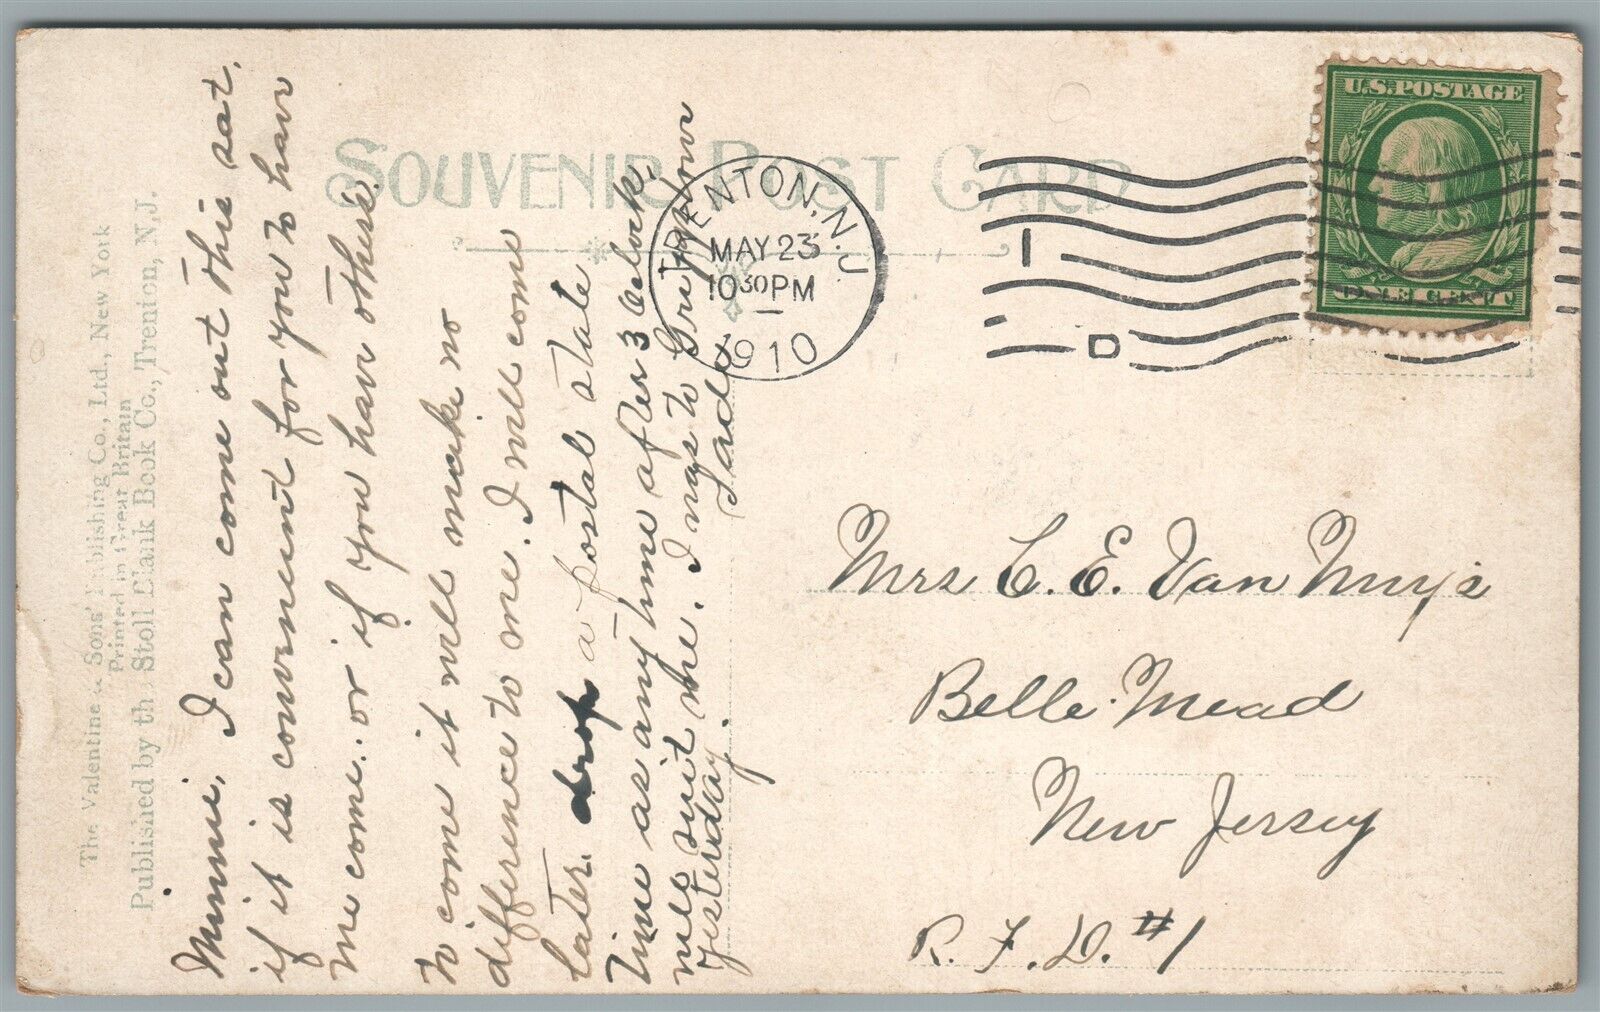 SOUVENIR POST CARD
The Valentine & Sons' Publishing Co., Ltd., New York
Printed in Great Britain
Published by th Stoll Blank Book Co., Trenton, N.J.
Minnie, I can come out this sat.
if it is convenient for you to have
me come. or if you have others
to come it will make no
difference to me. I will come
later. drop a postal state
time as any time after 3 oclock,
will suit me. I was to Griggstown
yesterday. Sadie
TRENTON, N.J.
MAY 23
10 30 PM
1910
1
D
U.S. POSTAGE
Mrs C. E. Van Nuys
Belle Mead
New Jersey
R. F. D. #1